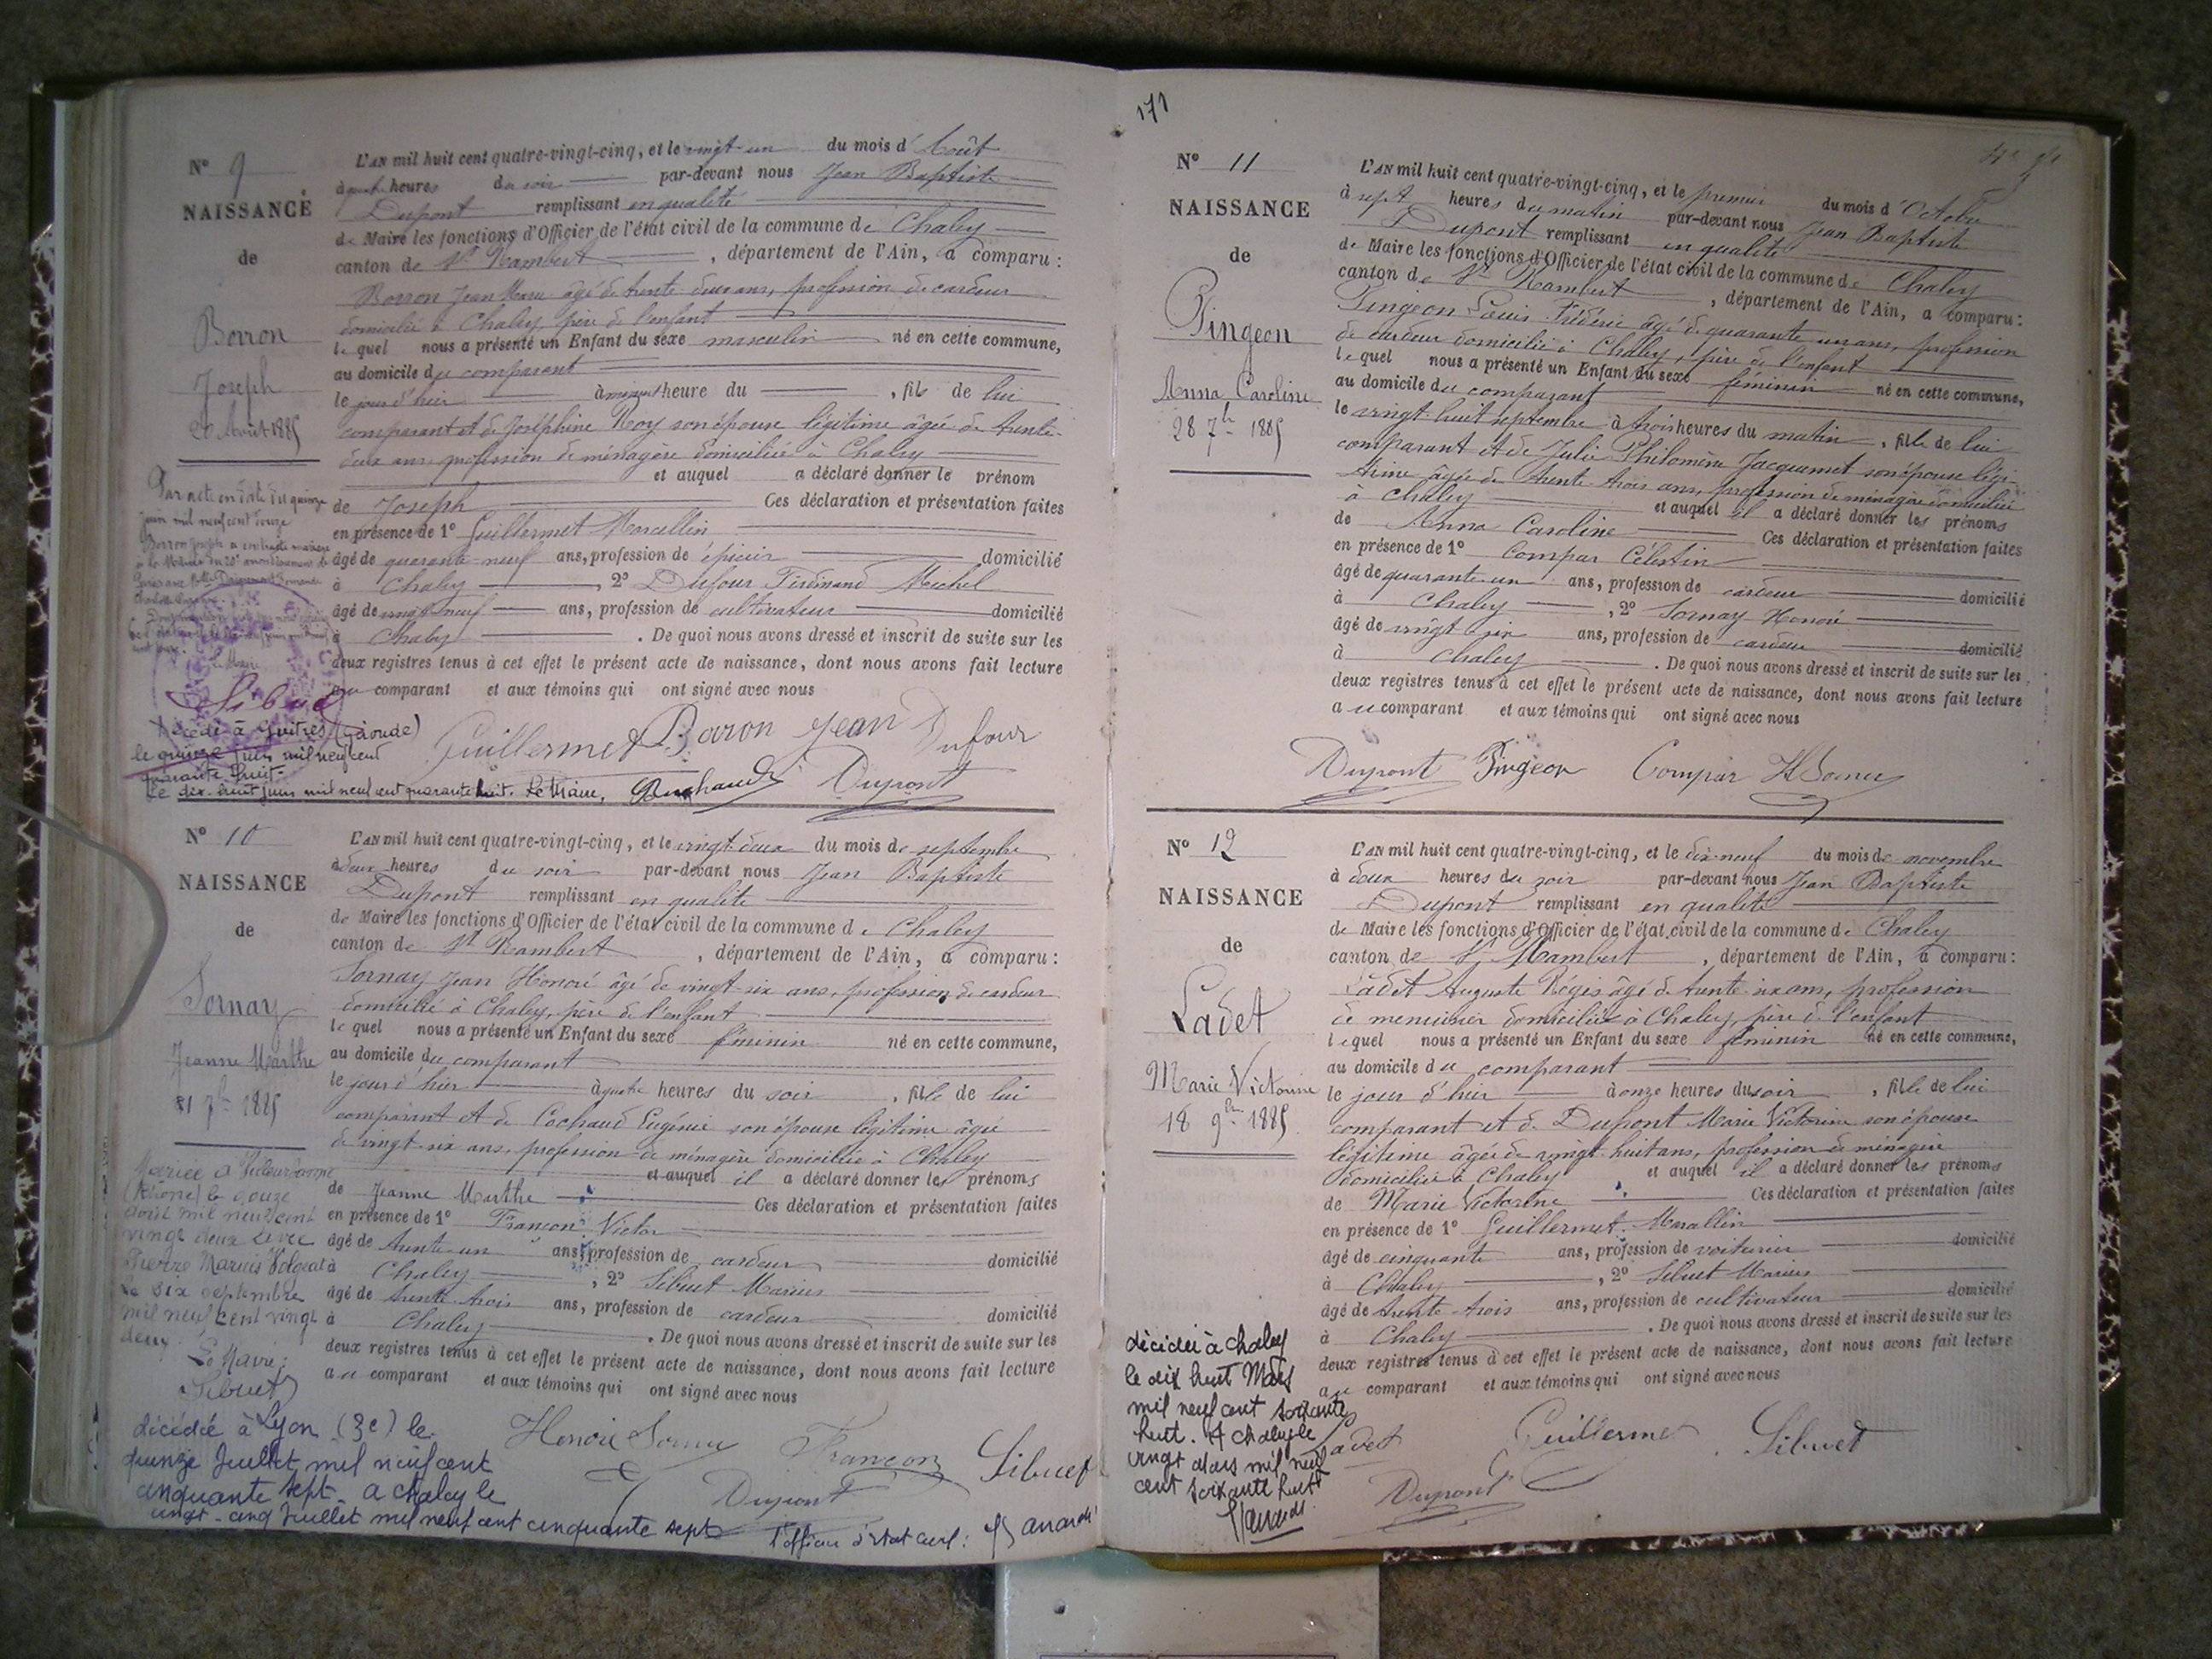 N° 9
NAISSANCE
de
Borron
Joseph
20 Août 1885
L'AN mil huit cent quatre-vingt-cinq, et le vingt-un du mois d'Août
à quatre heures du soir par-devant nous Jean Baptiste
Dupont remplissant en qualité
de Maire les fonctions d'Officier de l'état civil de la commune de Chaley
canton de St Rambert, département de l'Ain, a comparu :
Borron Jean Marie âgé de trente deux ans, profession de cardeur
domicilié à Chaley père de l'enfant
lequel nous a présenté un Enfant du sexe masculin né en cette commune,
au domicile du comparant
le jour d'hier à heure du, fils de lui
comparant et de Joséphine Roy son épouse légitime âgée de trente-
deux ans profession de ménagère domiciliée à Chaley
et auquel a déclaré donner le prénom
de Joseph Ces déclaration et présentation faites
en présence de 1° Guillermet Marcellin
âgé de quarante neuf ans, profession de épicier domicilié
à Chaley, 2° Dufour Ferdinand Michel
âgé de vingt-neuf ans, profession de cultivateur domicilié
à Chaley. De quoi nous avons dressé et inscrit de suite sur les
deux registres tenus à cet effet le présent acte de naissance, dont nous avons fait lecture
au comparant et aux témoins qui ont signé avec nous
Guillermet Boron Jean Dufour
Dupont
Par acte en date du quinze
juin mil neuf cent douze
Borron Joseph a contracté mariage
à la Mairie du 20e arrondissement de
Le Maire
Sibuet
Décédé à Guitres (Gironde)
le quinze juin mil neuf cent
quarante huit-
Le dix-huit juin mil neuf cent quarante huit. Le Maire,
N° 10
NAISSANCE
de
Sornay
Jeanne Marthe
21 7bre 1885
L'AN mil huit cent quatre-vingt-cinq, et le vingt-deux du mois de septembre
à deux heures du soir par-devant nous Jean Baptiste
Dupont remplissant en qualité
de Maire les fonctions d'Officier de l'état civil de la commune de Chaley
canton de St Rambert, département de l'Ain, a comparu :
Sornay Jean Honoré âgé de vingt-six ans, profession de cardeur
domicilié à Chaley, père de l'enfant
lequel nous a présenté un Enfant du sexe féminin né en cette commune,
au domicile du comparant
le jour d'hier à quatre heures du soir, fille de lui
comparant et de Cochaud Eugénie son épouse légitime âgée
de vingt-six ans, profession de ménagère domiciliée à Chaley
et auquel il a déclaré donner les prénoms
de Jeanne Marthe Ces déclaration et présentation faites
en présence de 1° Françon Victor
âgé de trente-un ans, profession de cardeur domicilié
à Chaley, 2° Sibuet Marius
âgé de trente-trois ans, profession de cardeur domicilié
à Chaley. De quoi nous avons dressé et inscrit de suite sur les
deux registres tenus à cet effet le présent acte de naissance, dont nous avons fait lecture
au comparant et aux témoins qui ont signé avec nous
Honoré Sornay Françon Sibuet
Dupont
Mariée à Villeurbanne
(Rhône) le douze
août mil neuf cent
vingt deux avec
Pierre Marius Volgeat
Le six septembre
mil neuf cent vingt
deux
Le Maire:
Sibuet
décédée à Lyon (3e) le
quinze Juillet mil neuf cent
cinquante sept. a chaley le
vingt-cinq Juillet mil neuf cent cinquante sept
l'officier d'état civil:
171
N° 11
NAISSANCE
de
Pingeon
Anna Caroline
28 7bre 1885
L'AN mil huit cent quatre-vingt-cinq, et le premier du mois d'Octobre
à sept heures du matin par-devant nous Jean Baptiste
Dupont remplissant en qualité
de Maire les fonctions d'Officier de l'état civil de la commune de Chaley
canton de St Rambert, département de l'Ain, a comparu :
Pingeon Louis Frédéric âgé de quarante un ans, profession
de cardeur domicilié à Chaley, père de l'enfant
lequel nous a présenté un Enfant du sexe féminin né en cette commune,
au domicile du comparant
le vingt-huit septembre à trois heures du matin, fille de lui
comparant et de Julie Philomène Jacquemet son épouse légi-
time âgée de trente-trois ans, profession de ménagère domiciliée
à Chaley et auquel il a déclaré donner les prénoms
de Anna Caroline Ces déclaration et présentation faites
en présence de 1° Compar Célestin
âgé de quarante-un ans, profession de cardeur domicilié
à Chaley, 2° Sornay Honoré
âgé de vingt six ans, profession de cardeur domicilié
à Chaley. De quoi nous avons dressé et inscrit de suite sur les
deux registres tenus à cet effet le présent acte de naissance, dont nous avons fait lecture
au comparant et aux témoins qui ont signé avec nous
Dupont Pingeon Compar H Sornay
N° 12
NAISSANCE
de
Ladet
Marie Victorine
18 9bre 1885
L'AN mil huit cent quatre-vingt-cinq, et le dix-neuf du mois de novembre
à deux heures du soir par-devant nous Jean Baptiste
Dupont remplissant en qualité
de Maire les fonctions d'Officier de l'état civil de la commune de Chaley
canton de St Rambert, département de l'Ain, a comparu :
Ladet Auguste Régis âgé de trente six ans, profession
de menuisier domicilié à Chaley, père de l'enfant
lequel nous a présenté un Enfant du sexe féminin né en cette commune,
au domicile du comparant
le jour d'hier à onze heures du soir, fille de lui
comparant et de Dupont Marie Victorine son épouse
légitime âgée de vingt-huit ans, profession de ménagère
domiciliée à Chaley et auquel il a déclaré donner les prénoms
de Marie Victorine Ces déclaration et présentation faites
en présence de 1° Guillermet Marcellin
âgé de cinquante ans, profession de voiturier domicilié
à Chaley, 2° Sibuet Marius
âgé de trente-trois ans, profession de cultivateur domicilié
à Chaley. De quoi nous avons dressé et inscrit de suite sur les
deux registres tenus à cet effet le présent acte de naissance, dont nous avons fait lecture
au comparant et aux témoins qui ont signé avec nous
Ladet Guillermet Sibuet
Dupont
décédée à chaley
le dix huit Mars
mil neuf cent soixante
huit. A chaley le
vingt Mars mil neuf
cent soixante huit